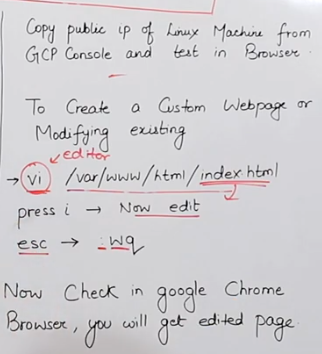 Copy public ip of Linux Machine from
GCP Console and test in Browser.
To Create a Custom Webpage or
Modifying existing
editor
→ vi /var/www/html/index.html
press i → Now edit
esc → :wq
Now Check in google Chrome
Browser, you will get edited page.